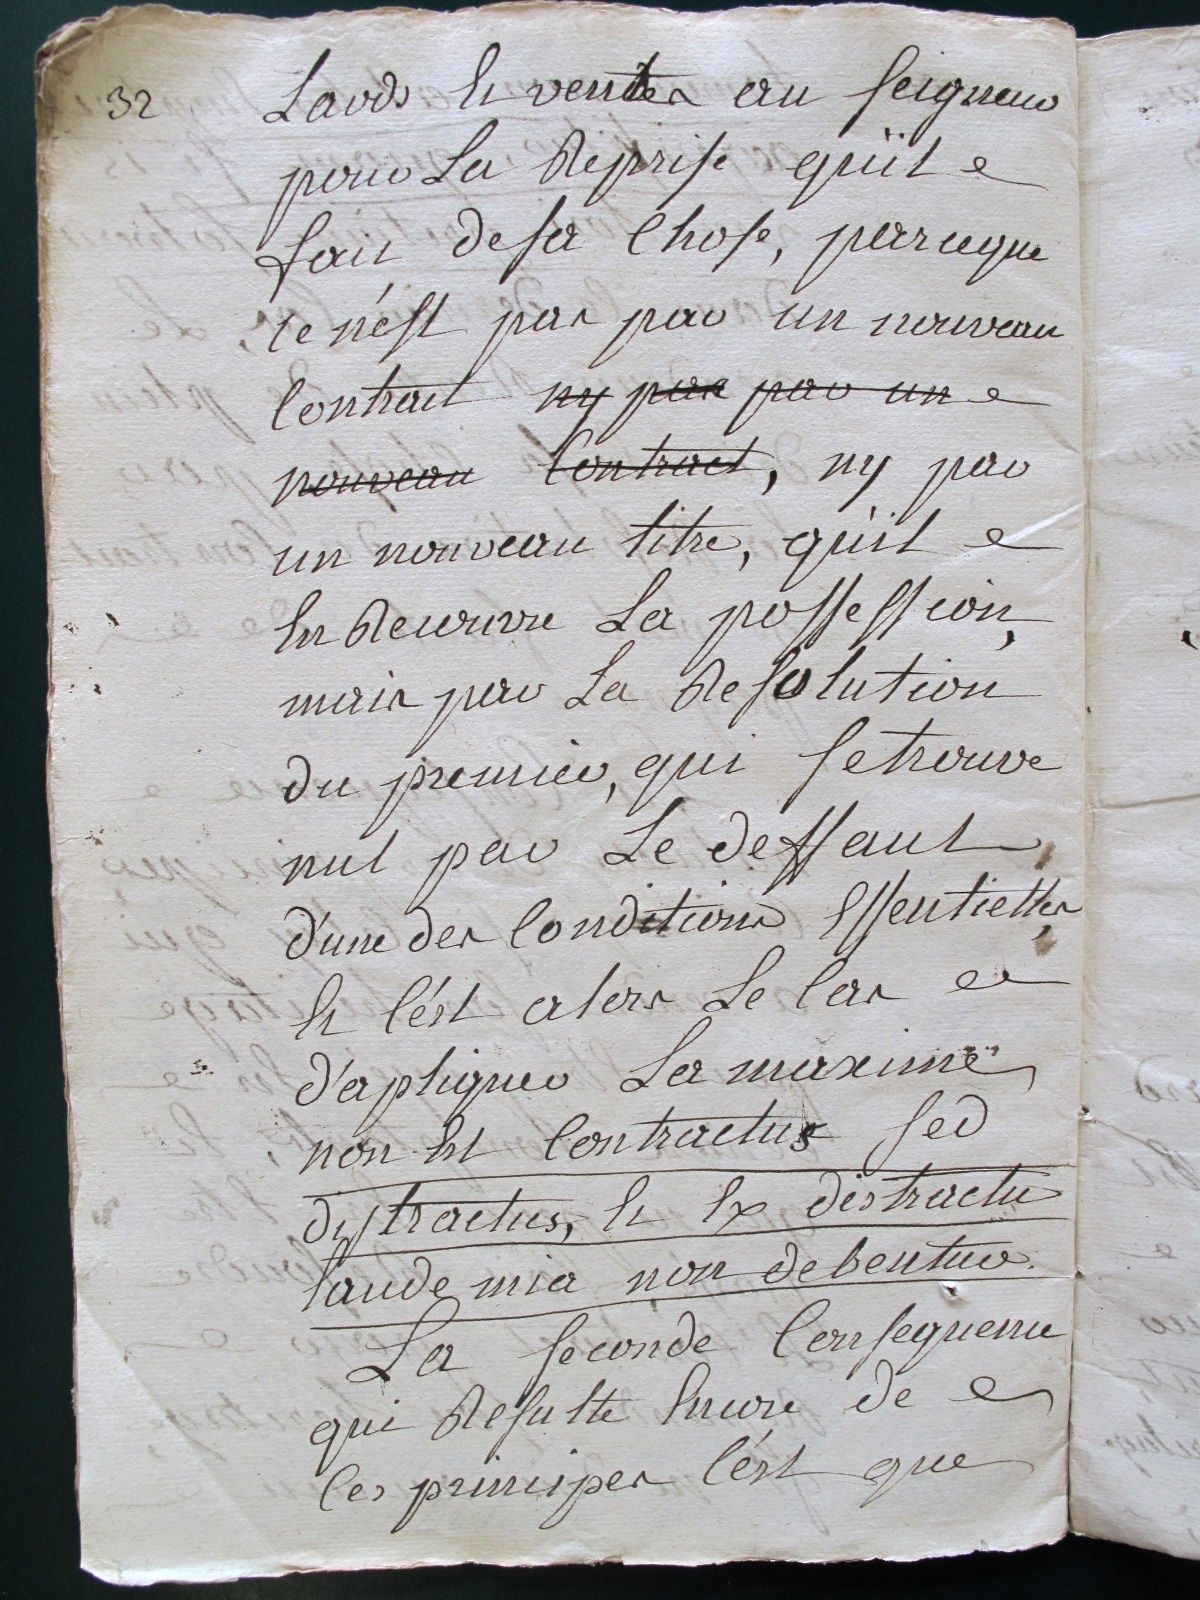 32
Laods Et ventes au seigneur
pour La Reprise qu'il
fait de sa Chose, parceque
ce n'est pas par un nouveau
Contract ny pas par un
nouveau Contract, ny par
un nouveau titre, qu'il
En Recouvre La possession,
mais par La Resolution
du premier, qui se trouve
nul par Le deffaut
d'une des Conditions Essentielles,
Et C'est alors Le Cas
d'apliquer La maxime
non Est Contractus sed
dystractus, Et Ex distractu
laudemia non debentur.
La seconde Consequence
qui Resulte Encore de
Ces principes C'est que